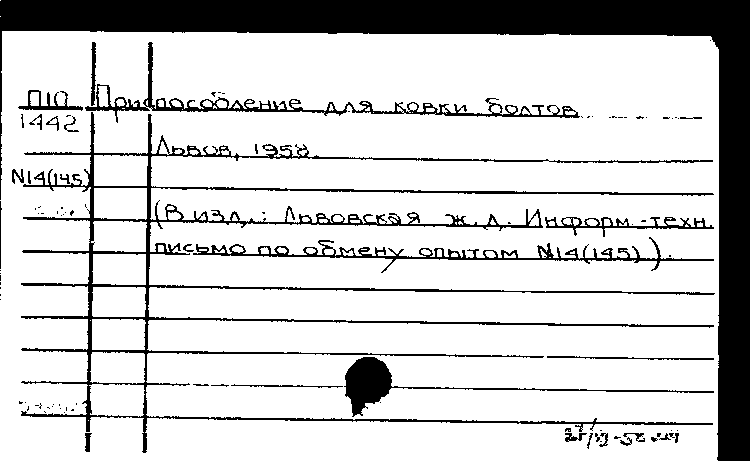 П10 Приспособление для ковки болтов
1442
Львов, 1958.
N14(145)
(В изд.: Львовская ж.д. Информ.-техн.
письмо по обмену опытом N14(145)).